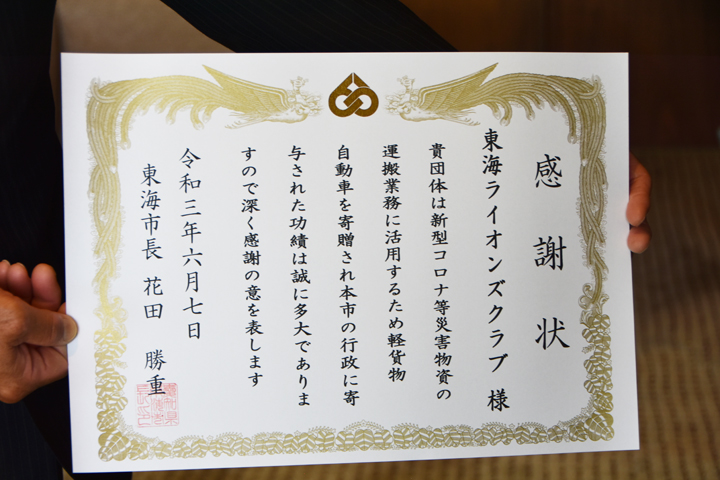 感謝状
東海ライオンズクラブ 様
貴団体は新型コロナ等災害物資の
運搬業務に活用するため軽貨物
自動車を寄贈され本市の行政に寄
与された功績は誠に多大でありま
すので深く感謝の意を表します
令和三年六月七日
東海市長 花田 勝重